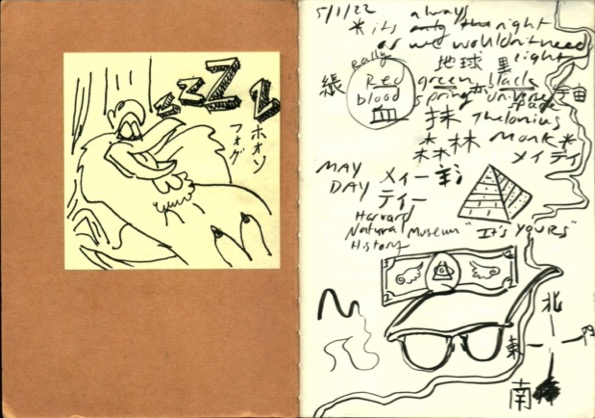 zzZZ
ホオソ
フォグ
5/1/22 always
* it's only the night
or we wouldn't need
light
地球 黒
Really
Red
blood
血
green black
spring universe
space
宇宙
抹 Thelonius
Monk *
森林
メイデイ
MAY
DAY
メィー
ティー
Harvard
Natural Museum "It's YOURS"
History
北
東
南